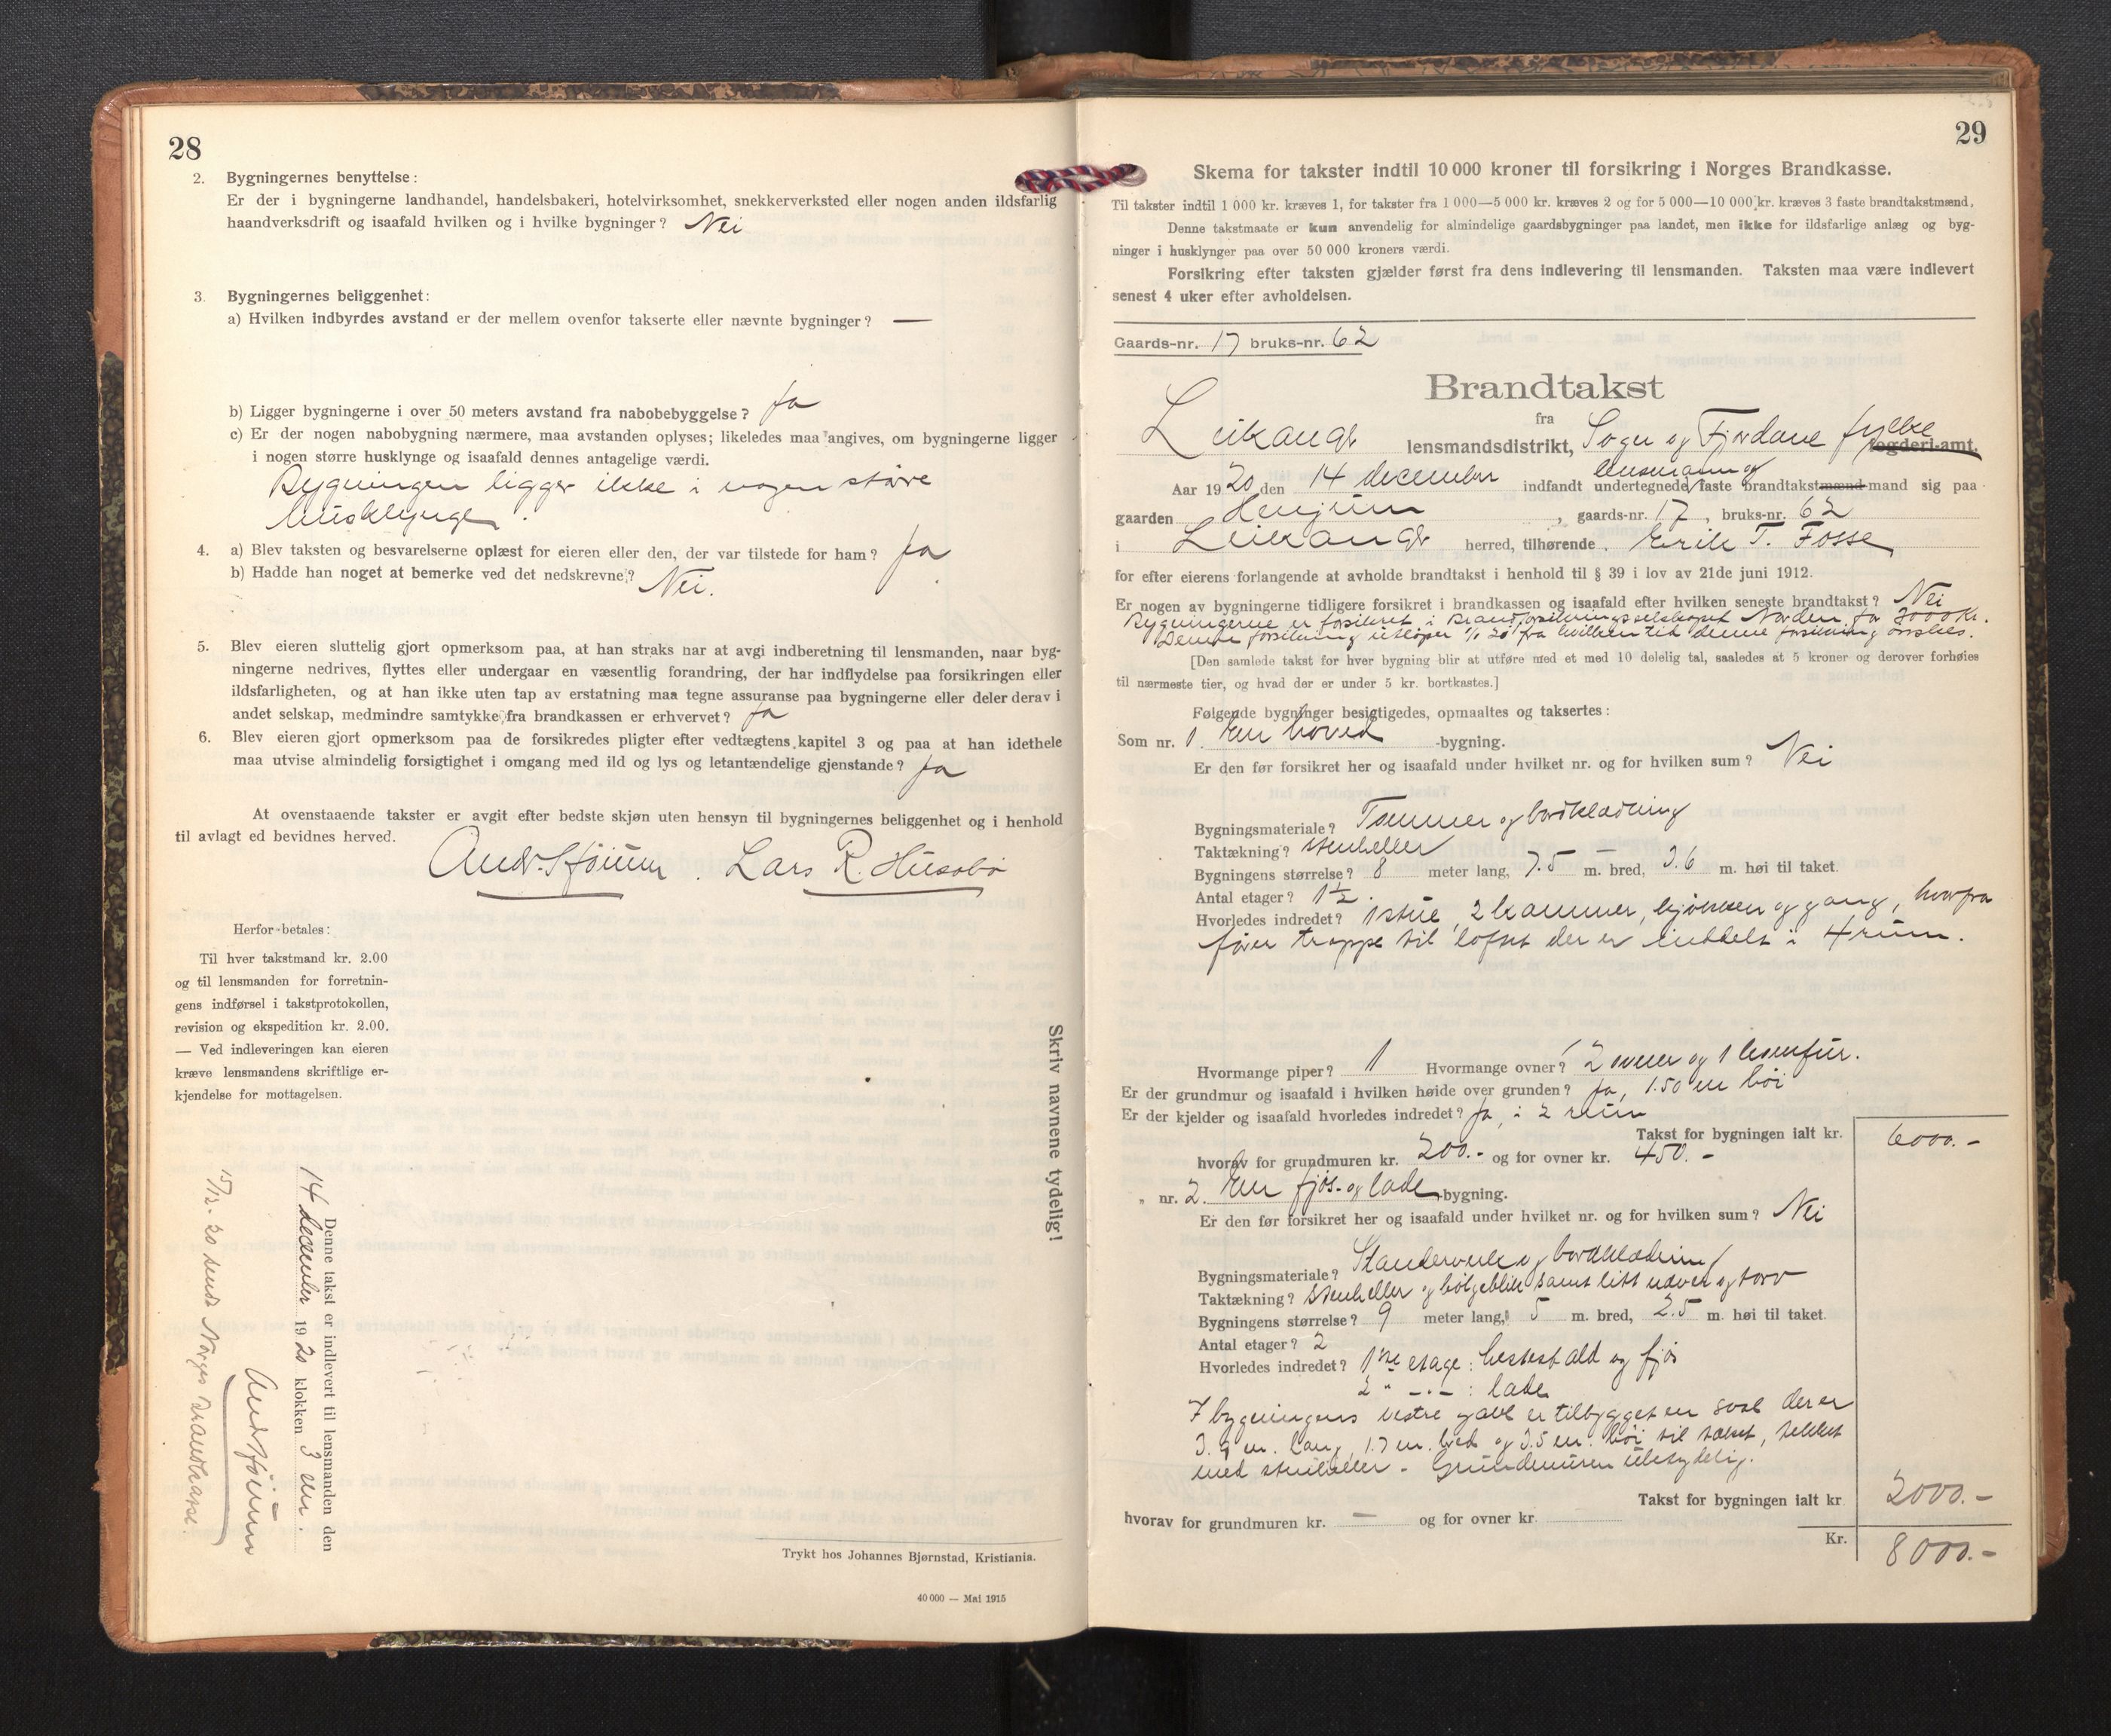 28
2. Bygningernes benyttelse:
Er der i bygningerne landhandel, handelsbakeri, hotelvirksomhet, snekkerverksted eller nogen anden ildsfarlig
haandverksdrift og isaafald hvilken og i hvilke bygninger? Nei
3. Bygningernes beliggenhet:
a) Hvilken indbyrdes avstand er der mellem ovenfor takserte eller nævnte bygninger? —
b) Ligger bygningerne i over 50 meters avstand fra nabobebyggelse? Ja
c) Er der nogen nabobygning nærmere, maa avstanden oplyses; likeledes maa angives, om bygningerne ligger
i nogen større husklynge og isaafald dennes antagelige værdi.
Bygningen ligger ikke i nogen større
husklynge.
4. a) Blev taksten og besvarelserne oplæst for eieren eller den, der var tilstede for ham? Ja
b) Hadde han noget at bemerke ved det nedskrevne? Nei.
5. Blev eieren sluttelig gjort opmerksom paa, at han straks har at avgi indberetning til lensmanden, naar byg-
ningerne nedrives, flyttes eller undergaar en væsentlig forandring, der har indflydelse paa forsikringen eller
ildsfarligheten, og at han ikke uten tap av erstatning maa tegne assuranse paa bygningerne eller deler derav i
andet selskap, medmindre samtykke fra brandkassen er erhvervet? Ja
6. Blev eieren gjort opmerksom paa de forsikredes pligter efter vedtægtens kapitel 3 og paa at han idethele
maa utvise almindelig forsigtighet i omgang med ild og lys og letantændelige gjenstande? Ja
At ovenstaaende takster er avgit efter bedste skjøn uten hensyn til bygningernes beliggenhet og i henhold
til avlagt ed bevidnes herved.
And. Støium. Lars R. Husabø
Herfor betales:
Til hver takstmand kr. 2.00
og til lensmanden for forretnin-
gens indførsel i takstprotokollen,
revision og ekspedition kr. 2.00.
— Ved indleveringen kan eieren
kræve lensmandens skriftlige er-
kjendelse for mottagelsen.
Skriv navnene tydelig!
Denne takst er indlevert til lensmanden den
14 december 1920 klokken 3 em.
And Støium
15/12-20 sendt Norges Brandkasse.
Trykt hos Johannes Bjørnstad, Kristiania.
40 000 — Mai 1915
29
Skema for takster indtil 10 000 kroner til forsikring i Norges Brandkasse.
Til takster indtil 1 000 kr. kræves 1, for takster fra 1 000—5 000 kr. kræves 2 og for 5 000—10 000 kr. kræves 3 faste brandtakstmænd.
Denne takstmaate er kun anvendelig for almindelige gaardsbygninger paa landet, men ikke for ildsfarlige anlæg og byg-
ninger i husklynger paa over 50 000 kroners værdi.
Forsikring efter taksten gjælder først fra dens indlevering til lensmanden. Taksten maa være indlevert
senest 4 uker efter avholdelsen.
Gaards-nr. 17 bruks-nr. 62
Brandtakst
fra
Leikanger lensmandsdistrikt, Sogn og Fjordane fylke fogderi-amt.
Aar 1920 den 14 december indfandt undertegnede lensmann og faste brandtakstmænd-mand sig paa
gaarden Henjum, gaards-nr. 17, bruks-nr. 62
i Leikanger herred, tilhørende Erik T. Fosse
for efter eierens forlangende at avholde brandtakst i henhold til § 39 i lov av 21de juni 1912.
Er nogen av bygningerne tidligere forsikret i brandkassen og isaafald efter hvilken seneste brandtakst? Nei
Bygningerne er forsikret i Brandforsikringsselskapet Norden for 3000 kr.
Denne forsikring utløper fra hvilken tid denne forsikring ønskes.
[Den samlede takst for hver bygning blir at utføre med et med 10 delelig tal, saaledes at 5 kroner og derover forhøies
til nærmeste tier, og hvad der er under 5 kr. bortkastes.]
Følgende bygninger besigtigedes, opmaaltes og taksertes:
Som nr. 1. En hoved-bygning.
Er den før forsikret her og isaafald under hvilket nr. og for hvilken sum? Nei
Bygningsmateriale? Tømmer og bordklædning
Taktækning? Stenheller
Bygningens størrelse? 8 meter lang, 7.5 m. bred, 3.6 m. høi til taket.
Antal etager? 1½.
Hvorledes indredet? 1 stue, 2 kammer, kjøkken og gang, hvorfra
fører trappe til loftet der er inddelt i 4 rum.
Hvormange piper? 1 Hvormange ovner? 2 ovner og 1 komfur.
Er der grundmur og isaafald i hvilken høide over grunden? Ja, 1.50 m høi
Er der kjelder og isaafald hvorledes indredet? Ja, i 2 rum
Takst for bygningen ialt kr. 6000.-
hvorav for grundmuren kr. 200.- og for ovner kr. 450.-
„ nr. 2. En fjøs- og lade-bygning.
Er den før forsikret her og isaafald under hvilket nr. og for hvilken sum? Nei
Bygningsmateriale? Standerverk og bordklædning
Taktækning? Stenheller og bølgeblik samt litt næver og torv
Bygningens størrelse? 9 meter lang, 5 m. bred, 2.5 m. høi til taket.
Antal etager? 2
Hvorledes indredet? 1ste etage: hestestald og fjøs
2 " -.- : lade
I bygningens vestre gavl er tilbygget en sval der er
3.9 m. lang, 1.7 m. bred og 3.5 m. høi til taket, tekket
med stenheller - Grundmuren ubetydelig.
Takst for bygningen ialt kr. 2000.-
hvorav for grundmuren kr. — og for ovner kr.
Kr. 8000.-